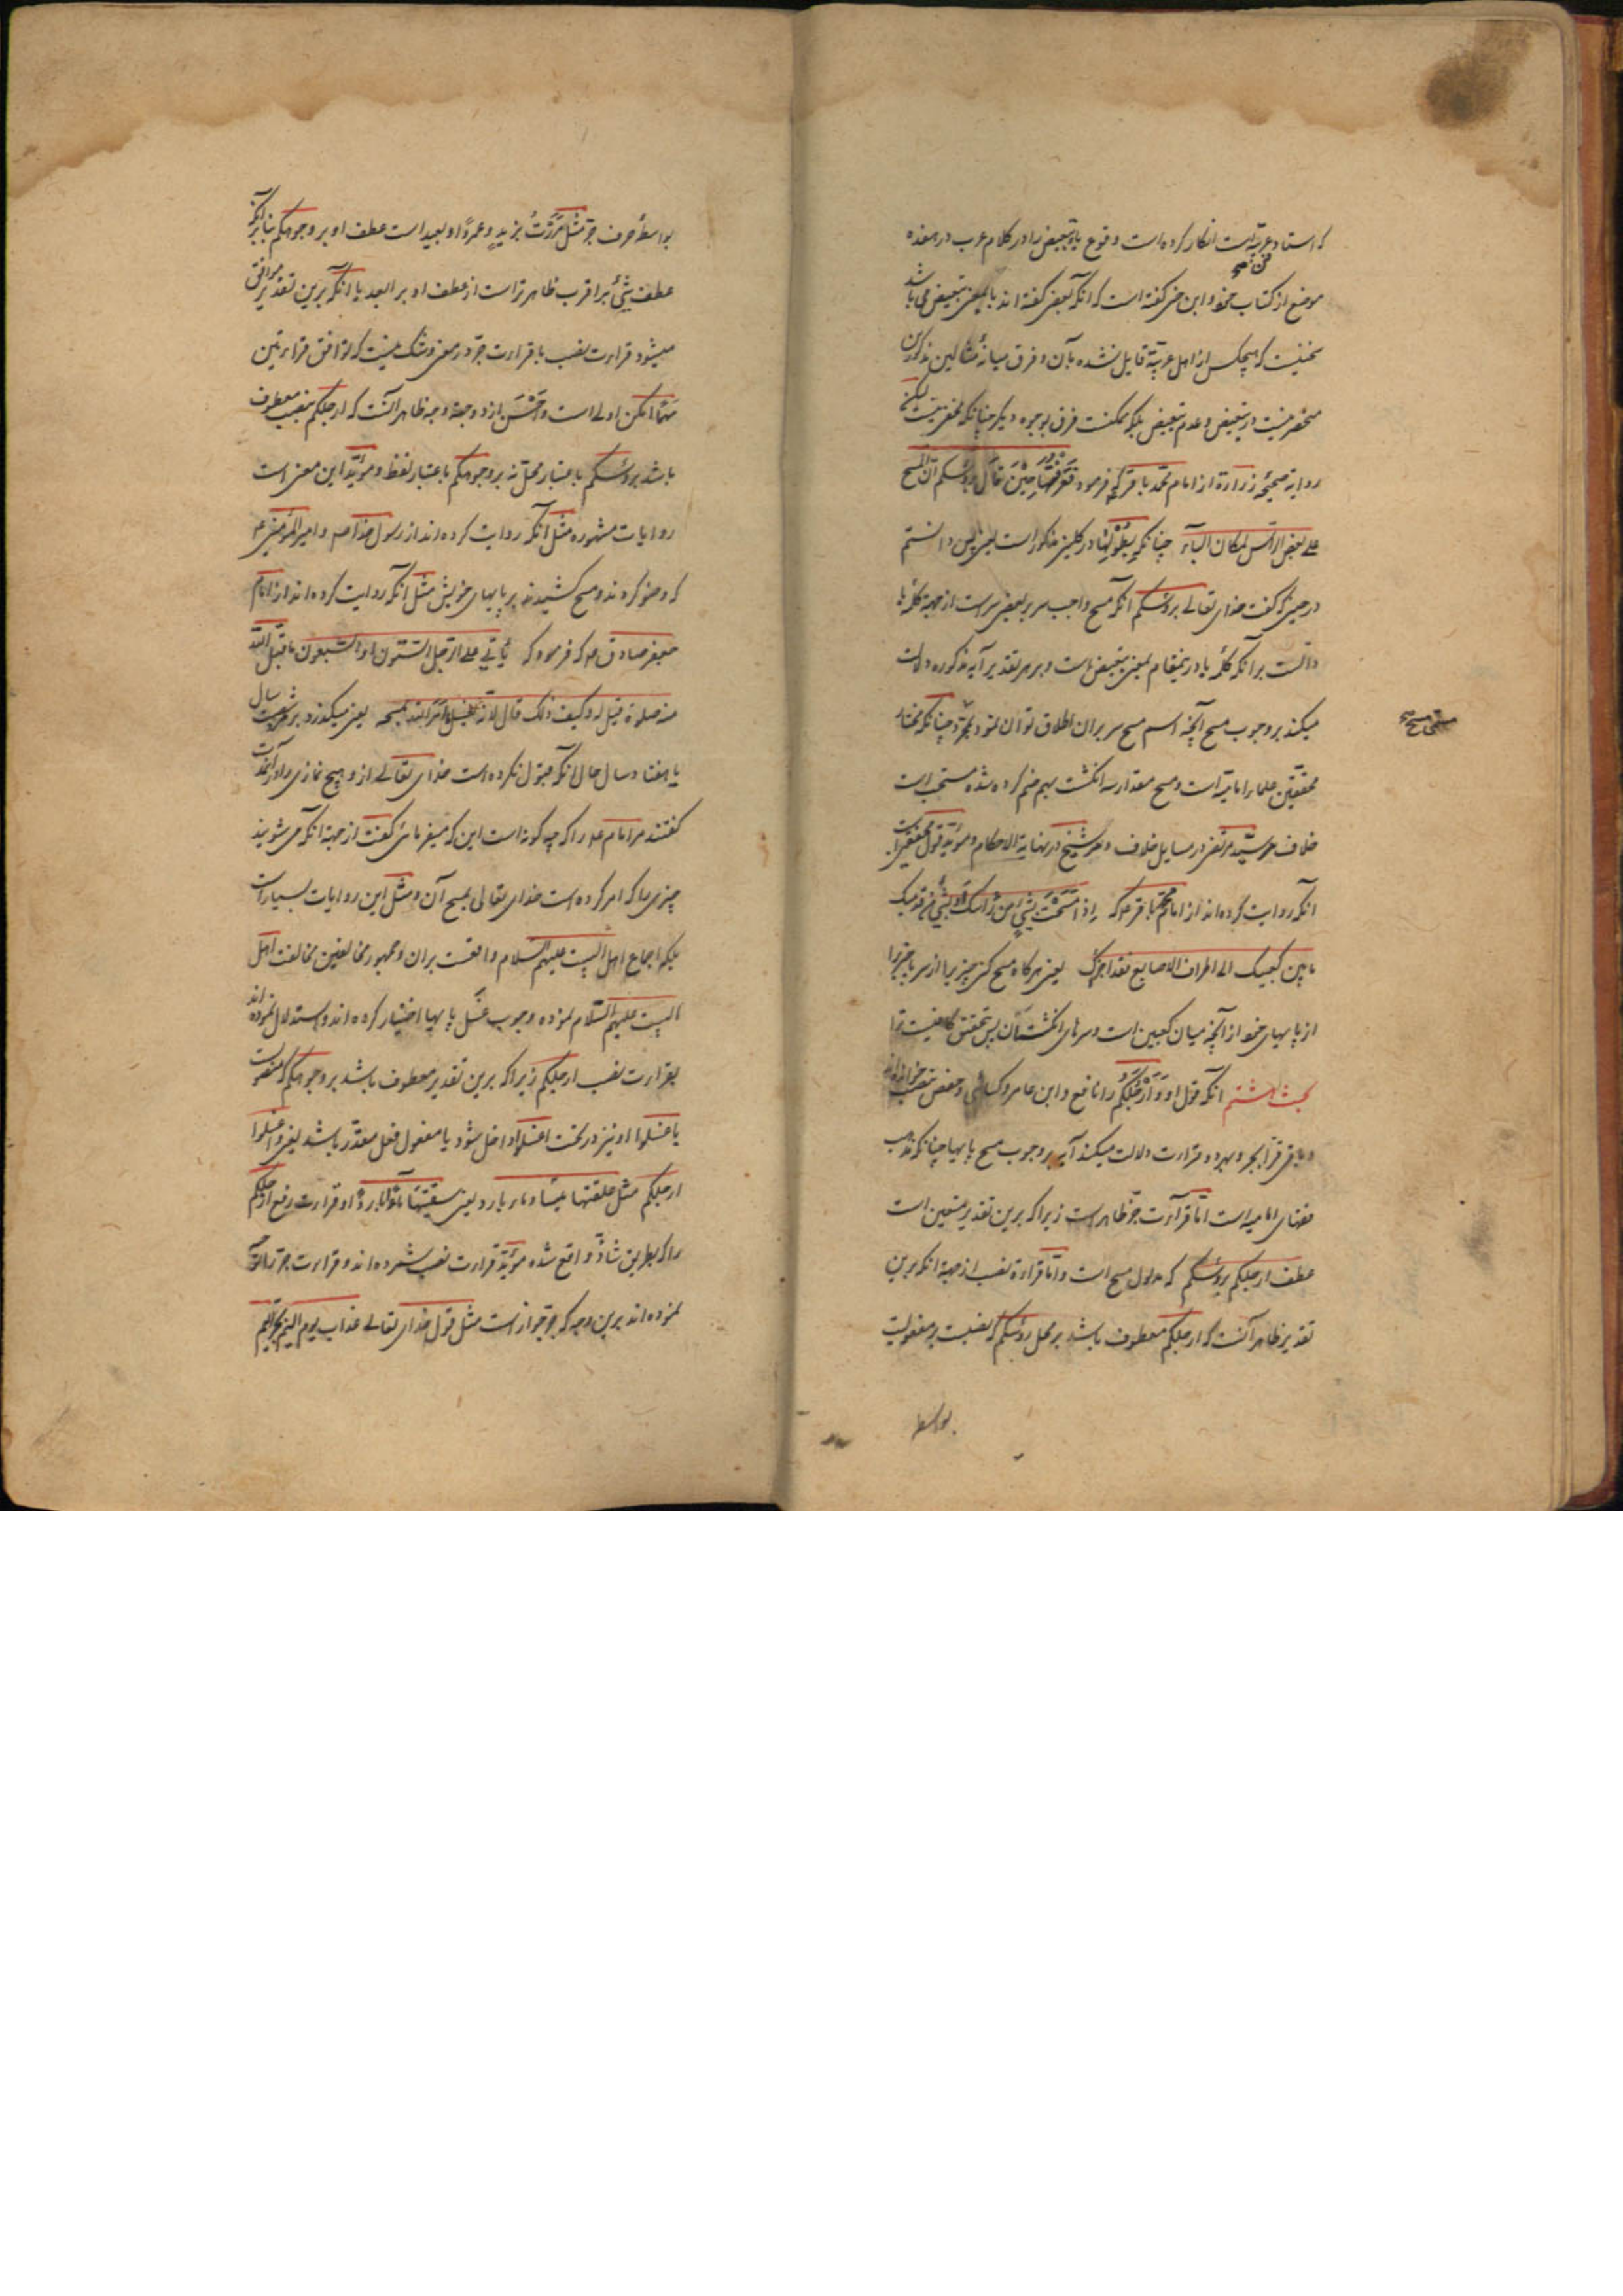 که استاد عربیّة است انکار کرده است وقوع باء تبعیض را در کلام عرب در هفده
فن صح
موضع از کتاب خود و ابن جنی گفته است که آنکه بعضی گفته اند با بمعنی تبعیض می باشد
سخنیست که هیچکس از اهل عربیّة قایل نشده بآن و فرق میانهٔ مثالین مذکورین
منحصر نیست در تبعیض و عدم تبعیض بلکه ممکنست فرق بوجوه دیگر چنانکه مخفی نیست لیکن
روایة صحیحهٔ زرارة از امام محمّد باقر که فرمود فَعَرَفْنَا حِیْنَ قَالَ بِرُؤُسِکُم اَنَّ المسح
علی بعض الرأس لمکان الباء چنانکه بطولها در کلینی مذکور است یعنی پس دانستم
در حینی که گفت خدای تعالی برؤسکم آنکه مسح واجب سر ببعض سر است از جهة کلمهٔ با
دالّست برانکه کلمهٔ با درینمقام بمعنی تبعیض است و بر هر تقدیر آیه مذکوره دلالت
میکند بر وجوب مسح آنچه اسم مسح سر بران اطلاق توان نمود چنانکه مختار
مسمی مسح صح
محققین علماء امامیّة است و مسح مقدار سه انگشت بهم ضم کرده شده مستحب است
خلاف مر سیّد مرتضی در مسایل خلاف و مر شیخ در نهایة الاحکام و مؤیّد قول محققین است
آنکه روایت کرده اند از امام محمّد باقر ع که اِذا مَسَحْتَ بِشَیْءٍ مِنْ رَأسِکَ اَوْ بِشَیْءٍ مِن قدمیک
ما بین کعبیک الی اطراف الاصابع فقد اجزاک یعنی هرگاه مسح کنی چیزیرا از سر یا چیزیرا
از پایهای خود از آنچه میان کعبین است و سرهای انگشتان پس بتحقیق کافیست ترا
بحث هشتم آنکه قول او وَاَرْجُلَکُم را نافع و ابن عامر و کسائی و حفص بنصب خوانده اند
و باقی قرّا بجر و بهر دو قراءت دلالت میکند آیه بر وجوب مسح پایها چنانکه مذهب
فقهای امامیه است امّا قراءت جرّ ظاهر است زیرا که برین تقدیر متعین است
عطف ارجلکم برؤسکم که مدلول مسح است و امّا قراءة نصب از جهة آنکه برین
تقدیر ظاهر آنست که ارجلکم معطوف باشد بر محل رؤسکم که نصبست بر مفعولیت
بواسطهٔ
بواسطهٔ حرف جرّ مثل مَرَرْتُ بِزَیدٍ وعمرًا و بعید است عطف او بر وجوهکم بنا بر آنکه
عطف شیء بر اقرب ظاهرتر است از عطف او بر ابعد با آنکه برین تقدیر موافق
میشود قراءت نصب با قراءت جرّ در معنی و شک نیست که توافق قراءتین
مَهْمَا امکن اولی است و اَحْسَن از دو جهة و جه ظاهر آنست که ارجلکم بنصب معطوف
باشد برؤسکم باعتبار محل نه بر وجوهکم باعتبار لفظ و مؤیّد این معنی است
روایات مشهوره مثل آنکه روایت کرده اند از رسول خدا ص و امیر المؤمنین ع
که وضو کردند و مسح کشیدند بر پایهای خویش مثل آنکه روایت کرده اند از امام
جعفر صادق ع که فرمود که یأتی علی الرجل الستّون او السّبعون ما قبل اللّه
منه صلوة قیل له و کیف ذلک قال لانّه یغسل ما امر اللّه بمسحه یعنی میگذرد بر مرد شصت سال
یا هفتاد سال حال آنکه قبول نکرده است خدای تعالی از و هیچ نمازی
گفتند مر امام ع را که چه گونه است این که میفرمائی گفت از جهة آنکه می شویند
چیزی را که امر کرده است خدای تعالی بمسح آن و مثل این روایات بسیار است
بلکه اجماع اهل البیت علیهم السلام واقعست بران و جمهور مخالفین مخالفت اهل
البیت علیهم السّلام نموده وجوب غسل پایها اختیار کرده اند و استدلال نموده اند
بقراءت نصب ارجلکم زیرا که برین تقدیر معطوف باشد بر وجوهکم که منصوبست
باغسلوا او نیز در تحت اغسلوا داخل شود یا مفعول فعل مقدّر باشد یعنی و اغسلوا
ارجلکم مثل علفتها تبنًا و ماء باردا یعنی سقیتها ماءً باردًا و قراءت رفع ارجلکم
را که بطریق شاذ واقع شده مؤیّد قراءت نصب شمرده اند و قراءت جر را تأویل
نموده اند برین وجه که جر جوار است مثل قول خدای تعالی عذاب یوم الیم بجرّ الیم